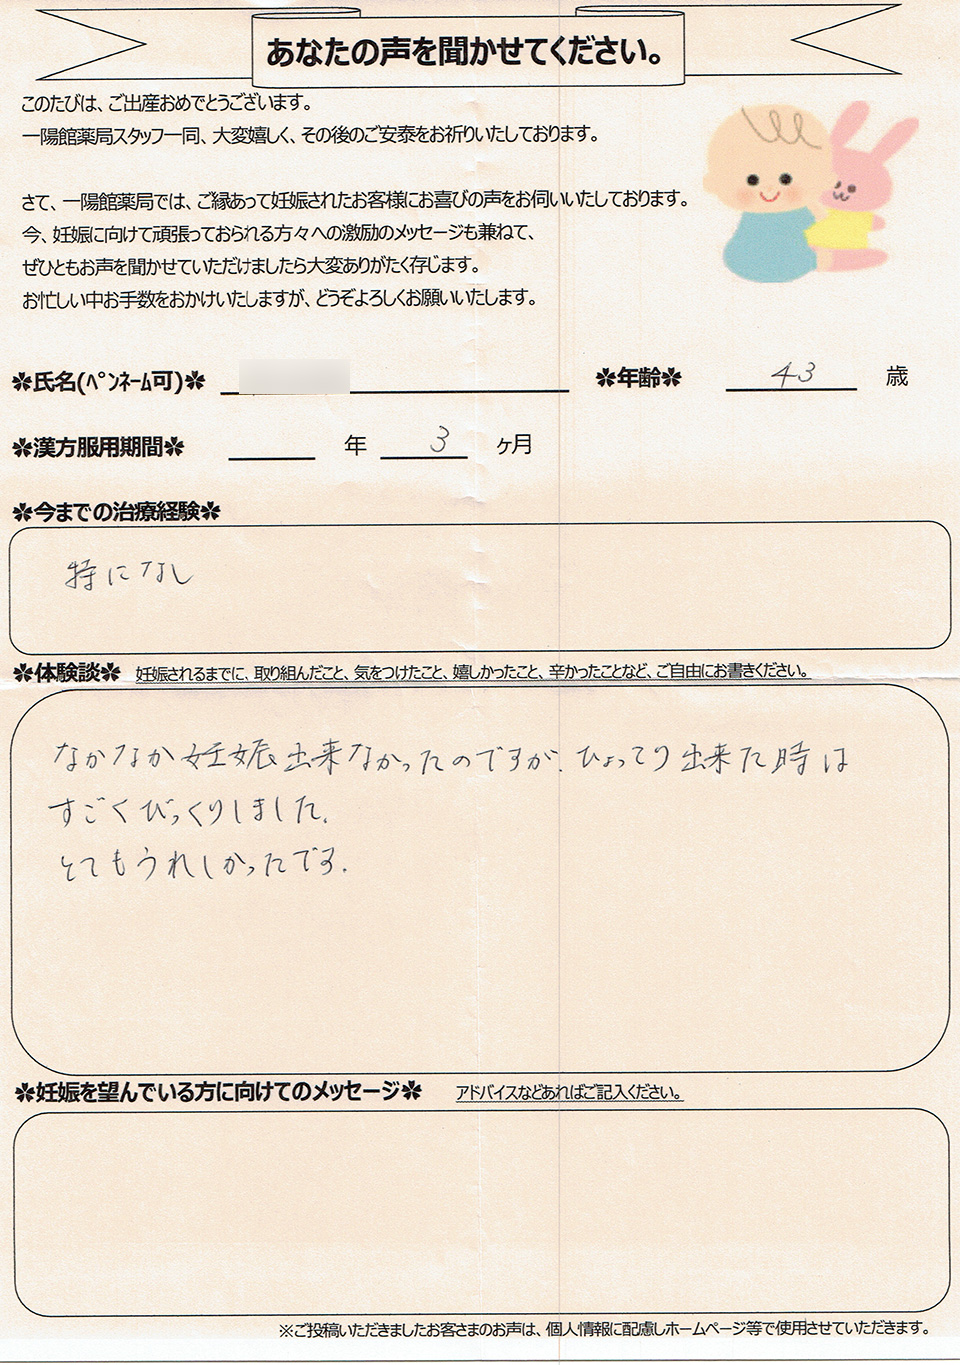 あなたの声を聞かせてください。
このたびは、ご出産おめでとうございます。
一陽館薬局スタッフ一同、大変嬉しく、その後のご安泰をお祈りいたしております。
さて、一陽館薬局では、ご縁あって妊娠されたお客様にお喜びの声をお伺いいたしております。
今、妊娠に向けて頑張っておられる方々への激励のメッセージも兼ねて、
ぜひともお声を聞かせていただけましたら大変ありがたく存じます。
お忙しい中お手数をおかけいたしますが、どうぞよろしくお願いいたします。
✽氏名(ﾍﾟﾝﾈｰﾑ可)✽ ✽年齢✽ 43 歳
✽漢方服用期間✽ 年 3 ヶ月
✽今までの治療経験✽
特になし
✽体験談✽ 妊娠されるまでに、取り組んだこと、気をつけたこと、嬉しかったこと、辛かったことなど、ご自由にお書きください。
なかなか妊娠出来なかったのですが、ひょってり出来た時は
すごくびっくりしました。
とてもうれしかったです。
✽妊娠を望んでいる方に向けてのメッセージ✽ アドバイスなどあればご記入ください。
※ご投稿いただきましたお客さまのお声は、個人情報に配慮しホームページ等で使用させていただきます。